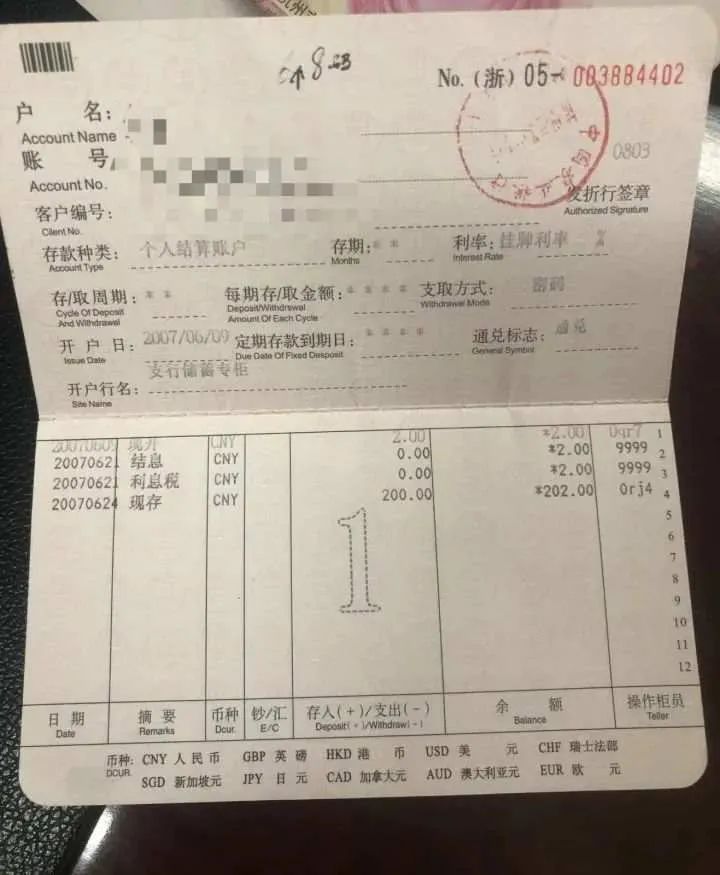 No. (浙) 05- 003884402
户 名:
Account Name
账 号
Account No.
0803
客户编号:
Client No.
发折行签章
Authorized Signature
存款种类: 个人结算账户 存期: * * 利率: 挂牌利率 %
Account Type Months Interest Rate
存/取周期: * * 每期存/取金额: * * * * 支取方式: 密码
Cycle Of Deposit And Withdrawal Deposit/Withdrawal Amount Of Each Cycle Withdrawal Mode
开 户 日: 2007/06/09 定期存款到期日: * * * * 通兑标志: 通兑
Issue Date Due Date Of Fixed Desposit General Symbol
支行储蓄专柜
开户行名:
Site Name
20070609 现开 CNY 2.00 *2.00 0qr7 1
20070621 结息 CNY 0.00 *2.00 9999 2
20070621 利息税 CNY 0.00 *2.00 9999 3
20070624 现存 CNY 200.00 *202.00 0rj4 4
5
6
7
8
9
10
11
12
1
日 期 摘 要 币种 钞/汇 存入(+)/支出(-) 余 额 操作柜员
Date Remarks Dcur. E/C Deposit(+)/Withdraw(-) Balance Teller
币种: CNY 人民币 GBP 英 镑 HKD 港 币 USD 美 元 CHF 瑞士法郎
DCUR. SGD 新加坡元 JPY 日 元 CAD 加拿大元 AUD 澳大利亚元 EUR 欧 元